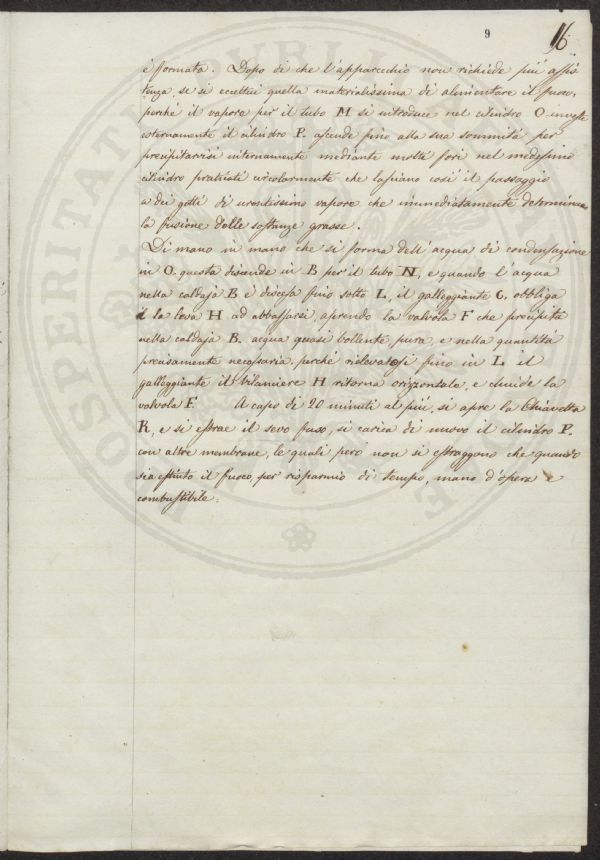 9
16
è formata. Dopo di che l'apparecchio non richiede più assis
tenza se si eccettui quella materialissima di alimentare il fuoco,
perchè il vapore per il tubo M si introduce nel cilindro O investe
esternamente il cilindro P. ascende fino alla sua sommità per
precipitarvisi internamente mediante molti fori nel medesimo
cilindro praticati circolarmente che lasciano così il passaggio
a dei getti di urentissimo vapore che immediatamente determinano
la fusione delle sostanze grasse.
Di mano in mano che si forma dell'acqua di condensazione
in O. questa discende in B per il tubo N, e quando l'acqua
nella caldaja B è discesa fino sotto L, il galleggiante C, obbliga
la leva H ad abbassarsi, aprendo la valvola F che precipita
nella caldaja B. acqua quasi bollente, pura, e nella quantità
precisamente necessaria. perchè rielevatosi fino in L il
galleggiante il bilanciere H ritorna orizzontale, e chiude la
valvola F. A capo di 20 minuti al più, si apre la Chiavetta
R, e si estrae il sevo fuso, si carica di nuovo il cilindro P.
con altre membrane, le quali però non si estraggono che quando
sia estinto il fuoco, per risparmio di tempo, mano d'opera e
combustibile.